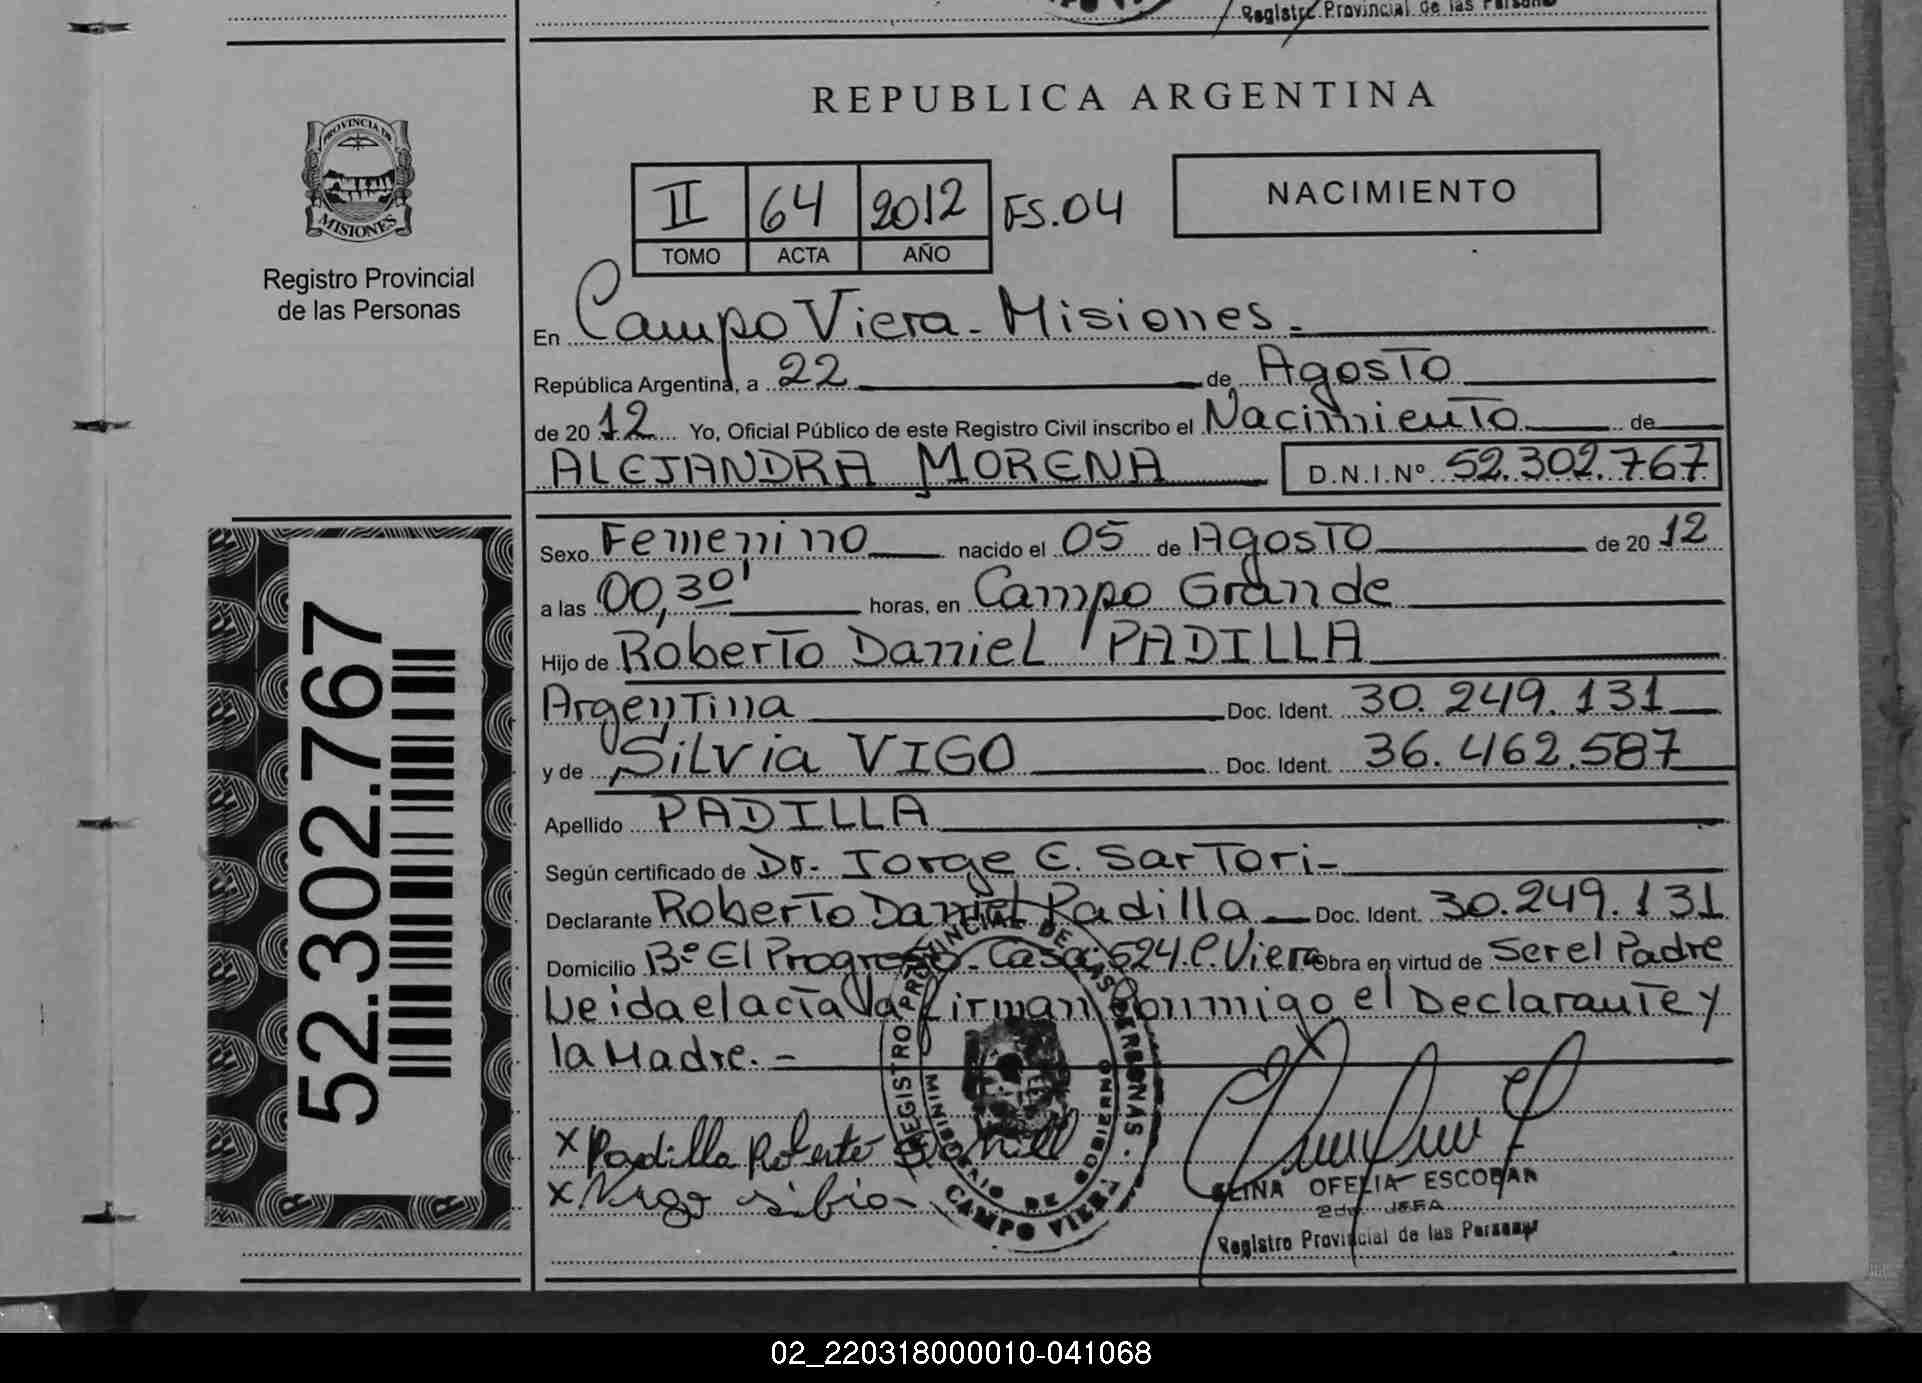 Registro Provincial de las Person
REPUBLICA ARGENTINA
PROVINCIA DE
MISIONES
Registro Provincial
de las Personas
II 64 2012 FS.04
TOMO ACTA AÑO
NACIMIENTO
En Campo Viera - Misiones.
República Argentina, a 22 de Agosto
de 2012 Yo, Oficial Público de este Registro Civil inscribo el Nacimiento de
ALEJANDRA MORENA D.N.I.Nº 52.302.767
Sexo Femenino nacido el 05 de Agosto de 2012
a las 00,30' horas, en Campo Grande
Hijo de Roberto Daniel PADILLA
Argentina Doc. Ident. 30.249.131
y de Silvia VIGO Doc. Ident. 36.462.587
Apellido PADILLA
Según certificado de Dr. Jorge E. Sartori-
Declarante Roberto Daniel Padilla Doc. Ident. 30.249.131
Domicilio Bº El Progreso - Casa 524. C. Viera Obra en virtud de Ser el Padre
Leida el acta la firman conmigo el Declarante y
la Madre. -
52.302.767
REGISTRO PROVINCIAL DE LAS PERSONAS
MINISTERIO DE GOBIERNO
CAMPO VIERA
x Padilla Roberto Daniel
x Vigo silvia
ELINA OFELIA ESCOBAR
2da. JEFA
Registro Provincial de las Personas
02_220318000010-041068